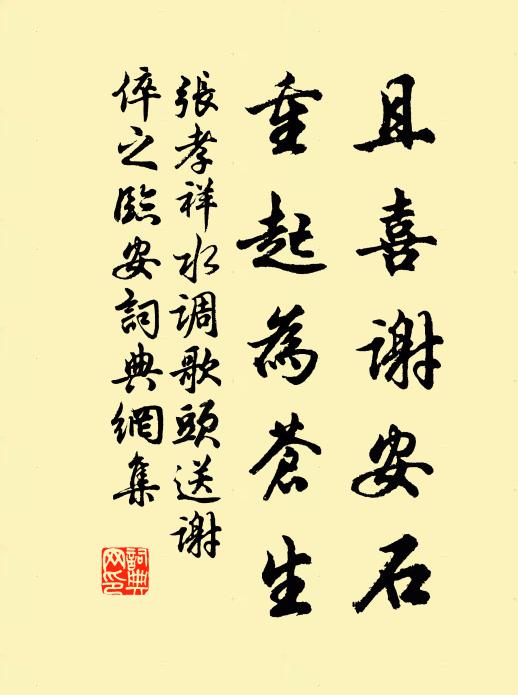 且喜谢安石
重起為蒼生
張孝祥水调歌頭送谢
倅之臨安詞典網集
詞典网印